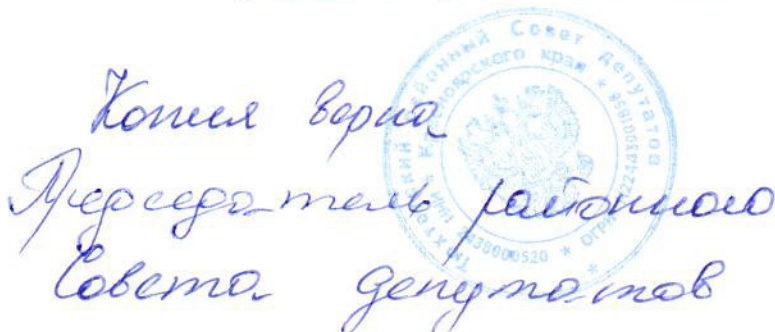 Копия верна
Председатель районного
Совета депутатов
районный Совет депутатов
Красноярского края